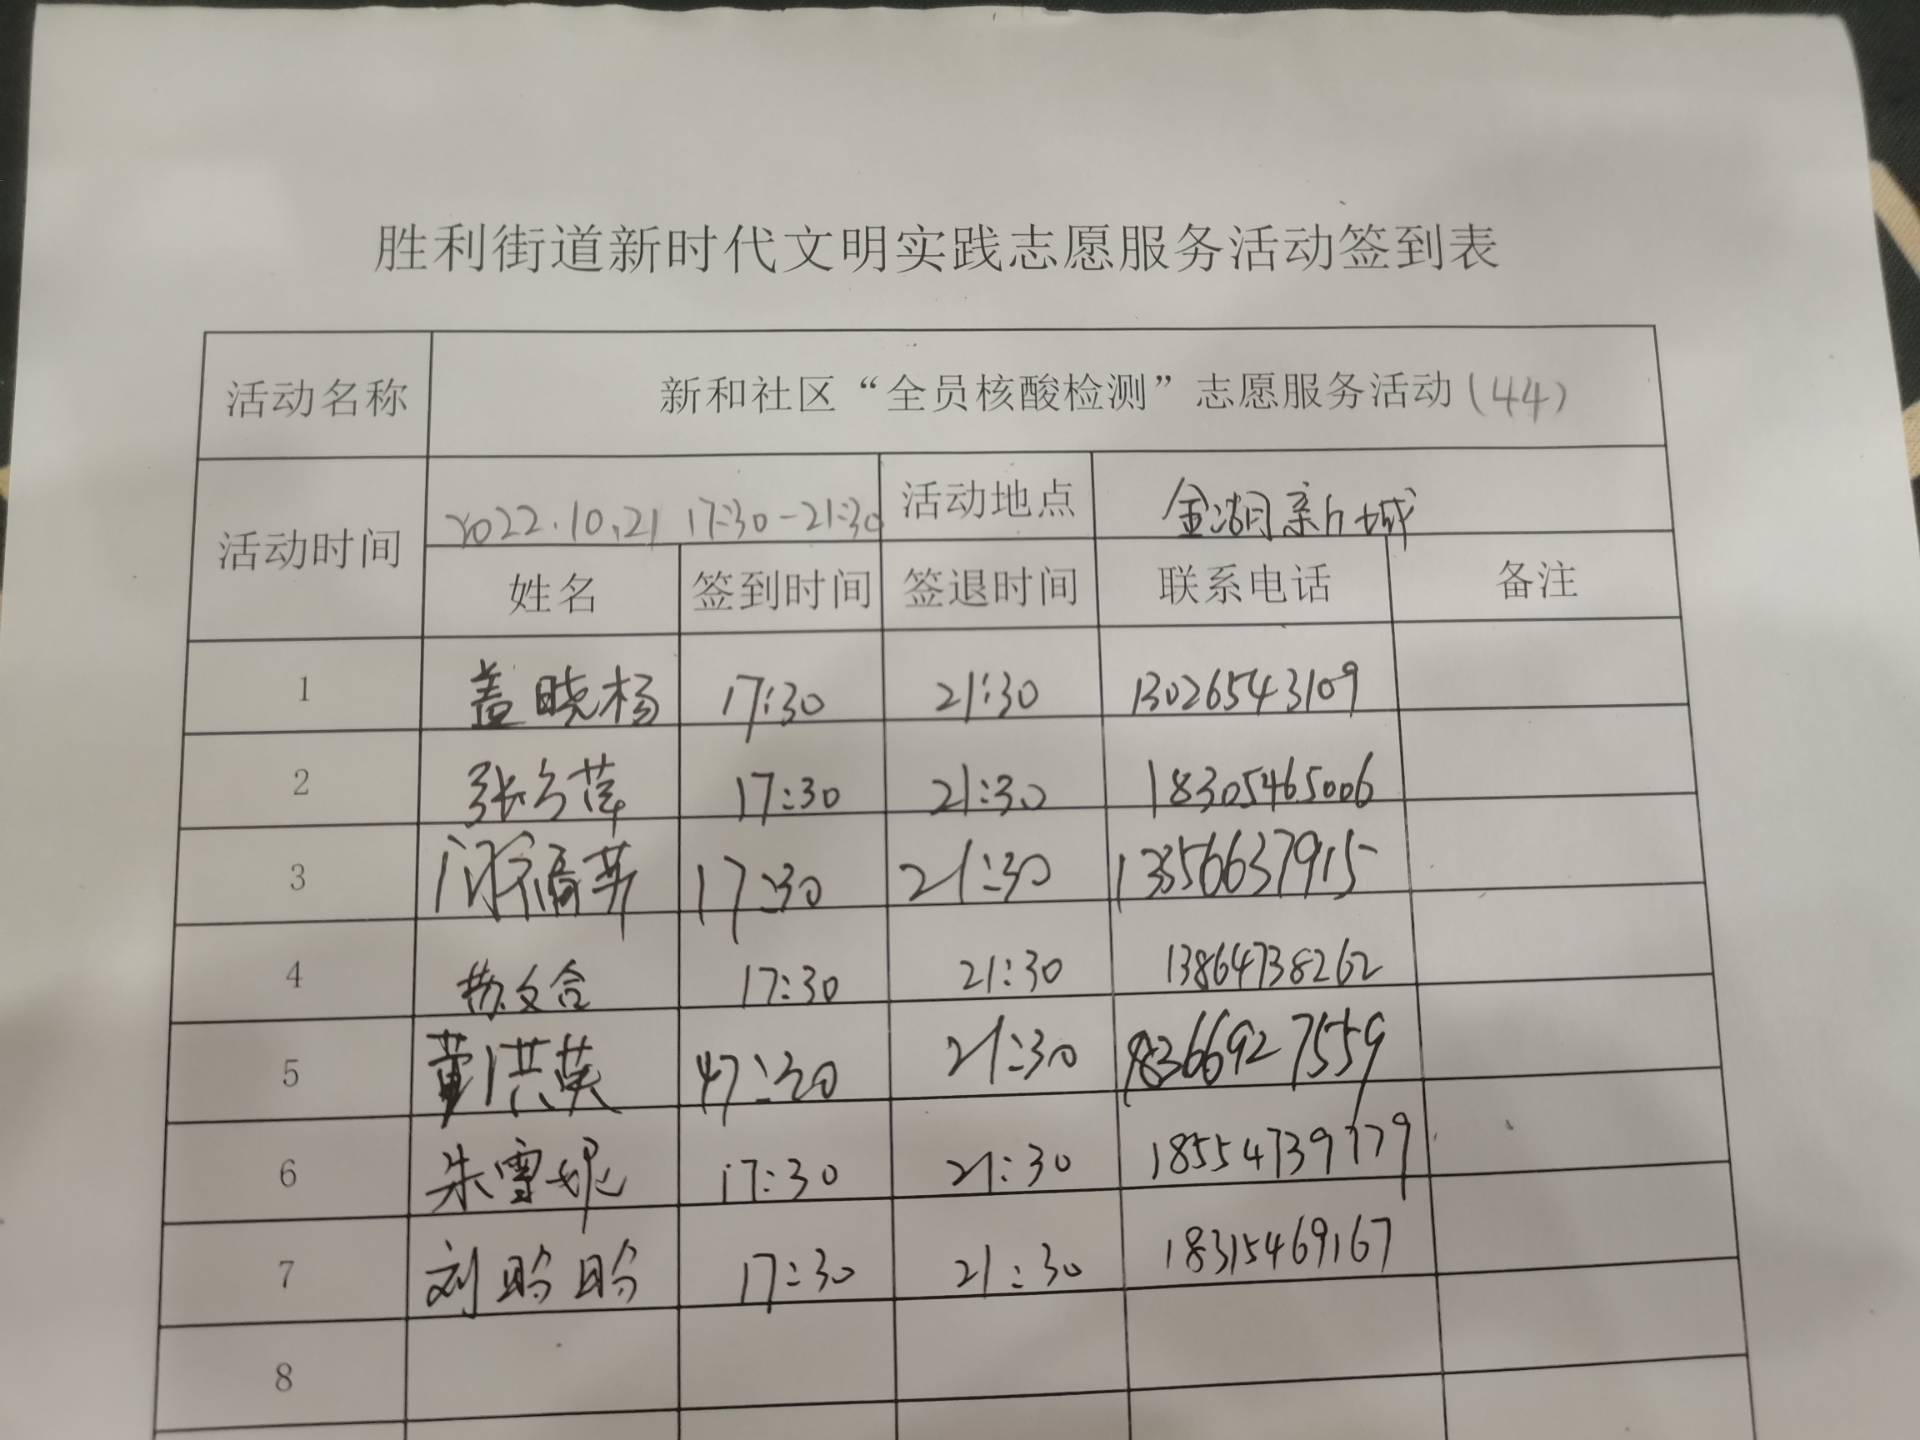 胜利街道新时代文明实践志愿服务活动签到表
活动名称 新和社区“全员核酸检测”志愿服务活动(44)
活动时间 2022.10.21 17:30-21:30 活动地点 金湖新城
姓名 签到时间 签退时间 联系电话 备注
1 盖晓杨 17:30 21:30 13026543109
2 张 萍 17:30 21:30 18305465006
3 17:30 21:30 13356637915
4 17:30 21:30 13864738262
5 董洪英 17:30 21:30 18366927559
6 朱雪妮 17:30 21:30 18554739779
7 刘盼盼 17:30 21:30 18315469167
8